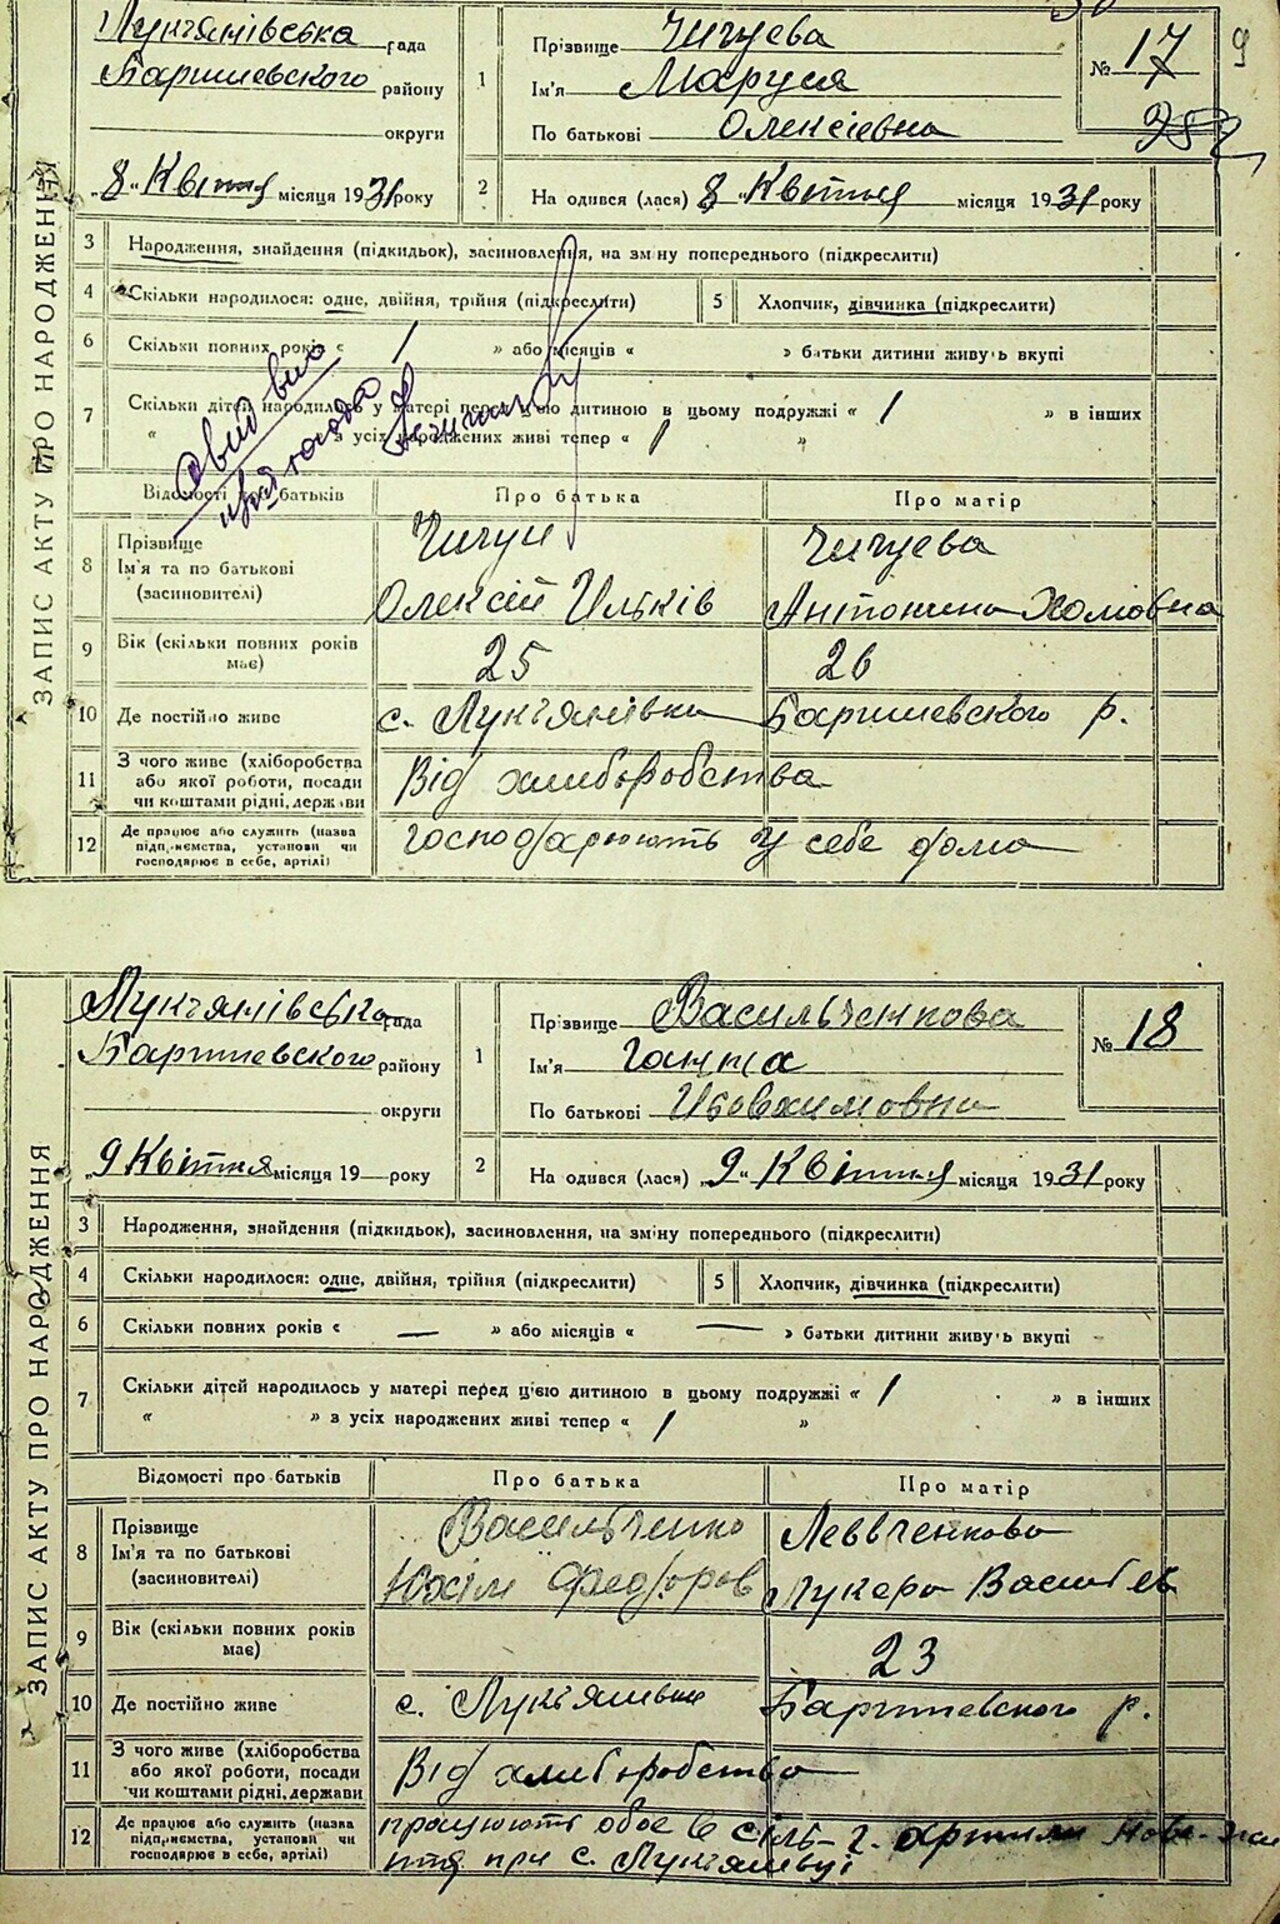 ЗАПИС АКТУ ПРО НАРОДЖЕННЯ
Лук'янівська рада
Баришевского району
округи
„8“ Квітня місяця 1931 року
1
Прізвище Чичуева
Ім'я Маруся
По батькові Олексіевна
№ 17
9
252
2
На одився (лася) 8 „ Квітня місяця 1931 року
3 Народження, знайдення (підкидьок), засиновлення, на зміну попереднього (підкреслити)
4 Скільки народилося: одне, двійня, трійня (підкреслити)
5 Хлопчик, дівчинка (підкреслити)
6 Скільки повних років « / » або місяців « » батьки дитини живуть вкупі
7 Скільки дітей народилось у матері перед цією дитиною в цьому подружжі « 1 » в інших
« з усіх народжених живі тепер « 1 »
Відомості про батьків
Про батька
Про матір
8 Прізвище
Ім'я та по батькові
(засиновителі)
Чичуи
Олексій Ильків
Чичуева
Антонина Хомовна
9 Вік (скільки повних років має)
25
26
10 Де постійно живе
с. Лук'янівка Баришевского р.
11 З чого живе (хліборобства
або якої роботи, посади
чи коштами рідні, держави
Від хлиборобства
12 Де працює або служить (назва
підприємства, установи чи
господарює в себе, артілі)
господарюють у себе дома
ЗАПИС АКТУ ПРО НАРОДЖЕННЯ
Лук'янівська рада
Баришевского району
округи
„9 Квітня місяця 19 — року
1
Прізвище Васильченкова
Ім'я Ганна
По батькові
№ 18
2
На одився (лася) „9“ Квітня місяця 1931 року
3 Народження, знайдення (підкидьок), засиновлення, на зміну попереднього (підкреслити)
4 Скільки народилось: одне, двійня, трійня (підкреслити)
5 Хлопчик, дівчинка (підкреслити)
6 Скільки повних років « — » або місяців « — » батьки дитини живуть вкупі
7 Скільки дітей народилось у матері перед цією дитиною в цьому подружжі « 1 » в інших
« » з усіх народжених живі тепер « 1 »
Відомості про батьків
Про батька
Про матір
8 Прізвище
Ім'я та по батькові
(засиновителі)
Васильченко
Юхим Федоров
Леввченкова
Лукера Васильев
9 Вік (скільки повних років має)
23
10 Де постійно живе
с. Лук'янивка Баришевского р.
11 З чого живе (хліборобства
або якої роботи, посади
чи коштами рідні, держави
Від хлиборобства
12 Де працює або служить (назва
підприємства, установи чи
господарює в себе, артілі)
працюють обое в сіль-г. артили Нове-жи
ття при с. Лук'янивці